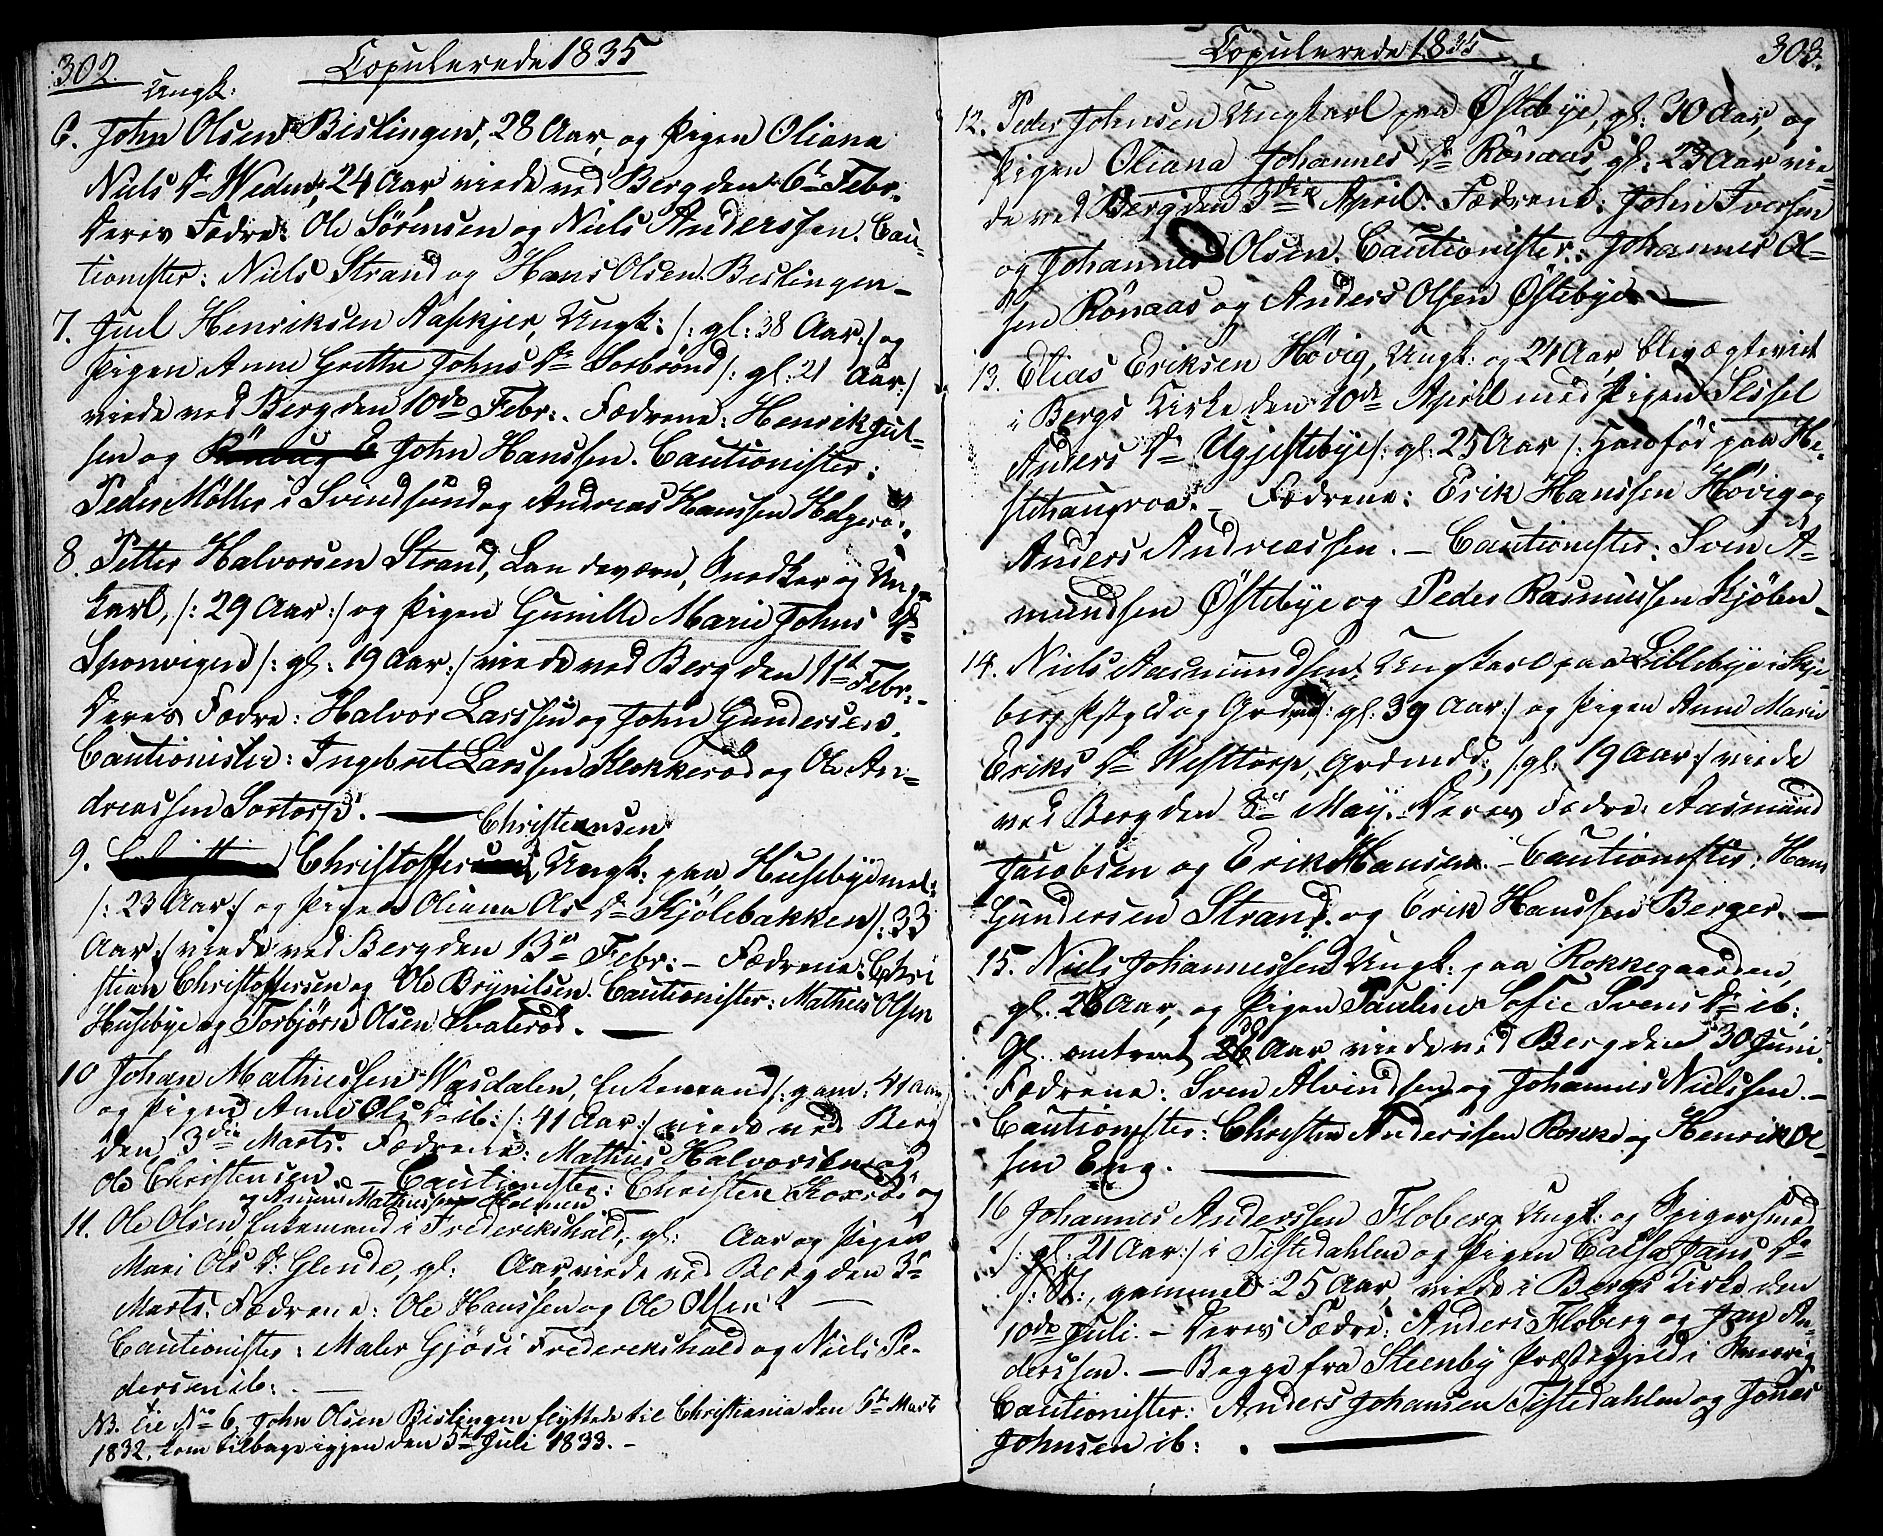 302.
Copulerede 1835
Ungk:
6. John Olsen Bislingen, 28 Aar, og Pigen Oliana
Niels Dr Weden, 24 Aar viede ved Berg den 6te Febr.
Deres Fædre: Ole Sørensen og Niels Anderssen. Cau-
tionister: Niels Strand og Hans Olsen Bislingen –
7. Juel Henriksen Aaskjer, Ungk: /: gl: 38 Aar :/ og
Pigen Anne Grethe Johns Dr Sorbrönd /: gl: 21 Aar :/
viede ved Berg den 10de Febr:. Fædrene: Henrik Jul-
sen og John Hanssen. Cautionister:
Peder Møller i Svindsund og Andreas Hanssen Helgerö.
8. Petter Halvorsen Strand, Landeværn, Snedker og Ung-
karl, /: 29 Aar :/ og Pigen Gunille Marie Johns Dr
Sponvigen /: gl: 19 Aar :/ viede ved Berg den 11te Febr. –
Deres Fædre: Halvor Larssen og John Gundersen.
Cautionister: Ingebret Larssen Klokkeröd og Ole An-
dreassen Sortorp. —
Christiansen
9. Christoffer Ungk: paa Husebye mel:
/: 23 Aar :/ og Pigen Oliana Ols Dr Kjölebakken /: 33
Aar :/ viede ved Berg den 13de Febr: – Fædrene: Chri
stian Christoffersen og Ole Brynilsen. Cautionister: Mathis Olsen
Husebye og Torbjørn Olsen Svaleröd. —
10 Johan Mathiessen Wasdalen, Enkemand /: gam: 41 Aar
og Pigen Anne Ols Dr ib: /: 41 Aar :/ viede ved Berg
den 3die Marts. Fædrene: Mathis Halvorsen og
Ole Christensen. – Cautionister: Christen og
og Mathissen Holmen
11. Ole Olsen, Enkemand i Frederikshald, gl: Aar og Pigen
Mari Ols Dr Glende, gl: Aar viede ved Berg den 3die
Marts. Fædrene: Ole Hanssen og Ole Olsen —
Cautionister: Maler Gjös i Frederikshald og Niels Pe-
dersen ib: —
NB. Til No 6. John Olsen Bislingen flyttede til Christiania den 5te Marts
1832, kom tilbage igjen den 5te Juli 1833. –
Copulerede 1835
303.
12. Peder Johnsen Ungkarl paa Östebye, gl: 30 Aar, og
Pigen Oliana Johannes Dr Rönaas, gl: 23 Aar, vie-
de ved Berg den 3die April. Fædrene: John Iversen
og Johannes Olsen. Cautionister: Johannes Ol-
sen Rönaas og Anders Olsen Östebye —
13. Elias Eriksen Hövig, Ungk: og 24 Aar, blev ægteviet
i Bergs Kirke den 10de April med Pigen Sissel
Anders Dr Ugjestebye /: gl: 25 Aar /: født paa He-
stehaugroa. – Fædrene: Erik Hanssen Hövig og
Anders Andreassen. – Cautionister: Sven A-
mundsen Östebye og Peder Rasmussen Kjöben –
14. Niels Aasmundsen Ungkarl paa Lillebye i Skje-
berg Pstgld og /: gl: 39 Aar :/ og Pigen Anne Marie
Eriks Dr Westtorp, /: gl: 19 Aar :/ viede
ved Berg den 8de May. Deres Fædre: Aasmund
Jacobsen og Erik Hansen. – Cautionister: Hans
Gundersen Strand og Erik Hanssen Berger. –
15. Niels Johannessen Ungk: paa Rokkegaarden,
gl: 26 Aar, og Pigen Pauline Sofie Svens Dr ib:,
Gl. omtrent Aar viede ved Berg den 30 Juni.
Fædrene: Sven Alvindsen og Johannes Nielssen. –
Cautionister: Christen Anderssen Rokke og Henrik Ol-
sen Eng. —
16 Johannes Anderssen Floberg Ungk: og Spigersmed
/: gl: 21 Aar :/ i Tistedahlen og Pigen Cajsa Jans Dr
/: St:, gammel 25 Aar, viede i Bergs Kirke den
10de Juli. – Deres Fædre: Anders Floberg og Jan An-
derssen. – Begge fra Steenby Præstegjeld i Sverrig
Cautionister: Anders Johansen Tistedahlen og Jonas
Johnsen ib: —